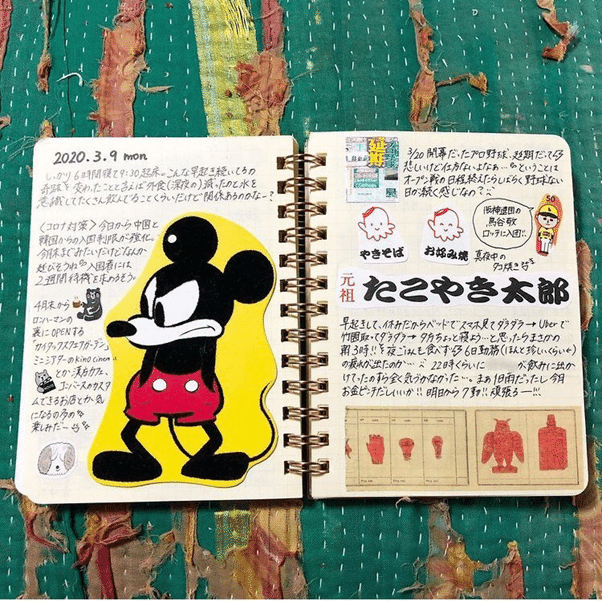 2020.3.9 mon
しっかり6時間寝て9:30起床。こんな早起き続いてるの
奇跡。変わったこと言えば外食(深夜の)減ったのと水を
意識してたくさん飲んでることくらいだけど関係あるのかなー?
〈コロナ対策〉今日から中国と
韓国からの入国制限が強化。
今月末までみたいだけどなんか
延びそうね。入国者には
2週間待機を求めるそう。
4月末から
ロンハーマンの
裏にOPENする
ミニシアターのKino Cinema
とか漢方カフェ、
コンバースのカスタ
んできるお店とか気
になるの多め
楽しみだー
延期
3/20開幕だったプロ野球、延期だって
悲しいけど仕方ないよなぁ…ということは
オープン戦の日程終えたらしばらく野球ない
日が続く感じなの?
やきそば
お好み焼
阪神退団の
鳥谷敬
ロッテに入団!!
50
真夜中の
夕焼き
元祖
たこやき太郎
早起きして、休みだからベッドでスマホ見てダラダラ→Uberで
竹園取ってダラダラ→夕方ちょっと寝よう…と思ったらまさかの
朝3時!!夜ごはんも食べず 6日勤務(ほんと珍しいくらい)
の疲れが出たのか… 22時くらいに 飲みに出か
けてったのすら全く気づかなかった…。まあ1日雨だったし今月
お金ピンチだしいいか!!明日から7勤!!頑張るー!!!